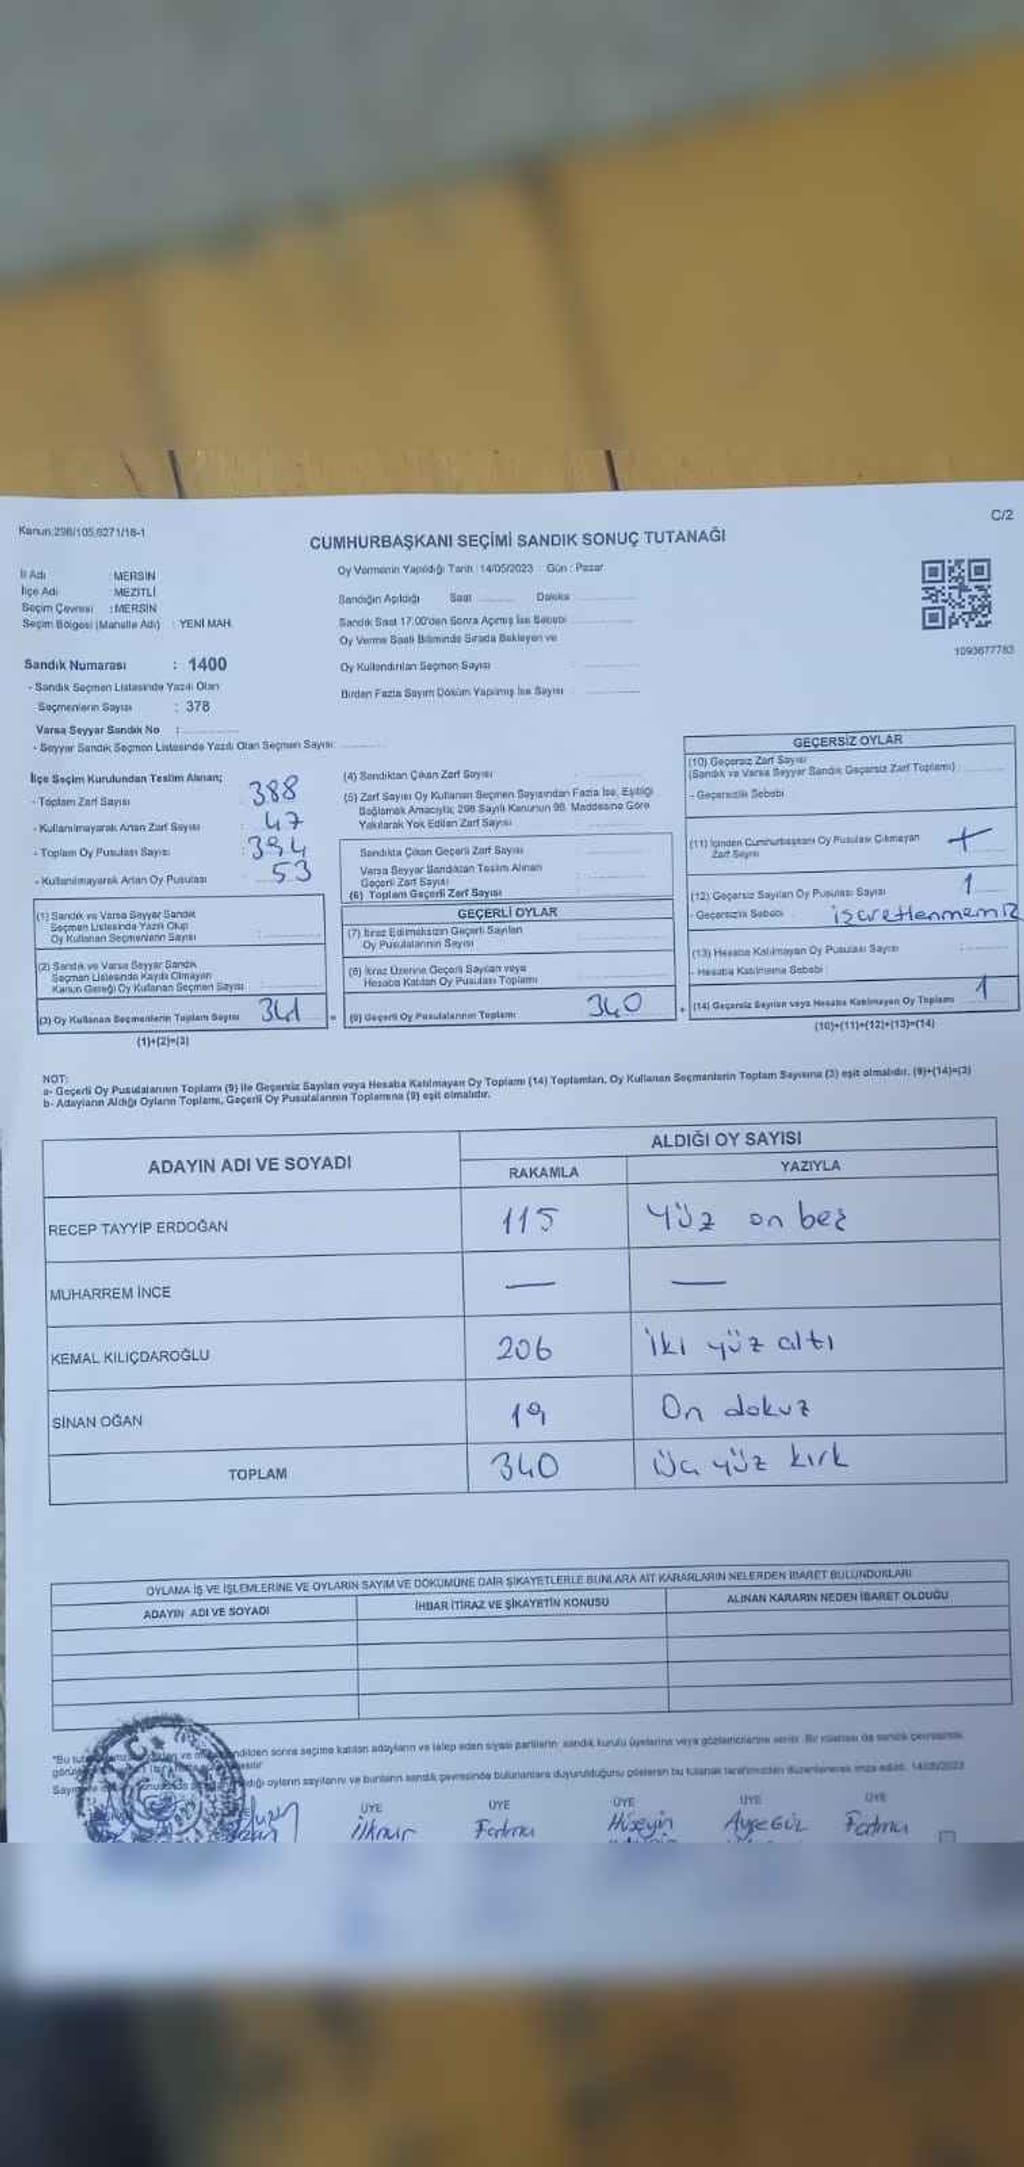 Kanun:298/105,6271/18-1
C/2
CUMHURBAŞKANI SEÇİMİ SANDIK SONUÇ TUTANAĞI
İl Adı : MERSİN
İlçe Adı : MEZİTLİ
Seçim Çevresi : MERSİN
Seçim Bölgesi (Mahalle Adı) : YENİ MAH.
Oy Vermenin Yapıldığı Tarih : 14/05/2023 Gün : Pazar
Sandığın Açıldığı Saat Dakika
Sandık Saat 17.00'den Sonra Açılmış İse Sebebi
Oy Verme Saati Bitiminde Sırada Bekleyen ve
Oy Kullandırılan Seçmen Sayısı
Birden Fazla Sayım Döküm Yapılmış İse Sayısı
1093677783
Sandık Numarası : 1400
- Sandık Seçmen Listesinde Yazılı Olan
Seçmenlerin Sayısı : 378
Varsa Seyyar Sandık No :
- Seyyar Sandık Seçmen Listesinde Yazılı Olan Seçmen Sayısı:
İlçe Seçim Kurulundan Teslim Alınan;
- Toplam Zarf Sayısı : 388
- Kullanılmayarak Artan Zarf Sayısı : 47
- Toplam Oy Pusulası Sayısı : 394
- Kullanılmayarak Artan Oy Pusulası : 53
(1) Sandık ve Varsa Seyyar Sandık
Seçmen Listesinde Yazılı Olup
Oy Kullanan Seçmenlerin Sayısı
(2) Sandık ve Varsa Seyyar Sandık
Seçmen Listesinde Kayıtlı Olmayan
Kanun Gereği Oy Kullanan Seçmen Sayısı
(3) Oy Kullanan Seçmenlerin Toplam Sayısı 341
(1)+(2)=(3)
(4) Sandıktan Çıkan Zarf Sayısı
(5) Zarf Sayısı Oy Kullanan Seçmen Sayısından Fazla İse, Eşitliği
Sağlamak Amacıyla; 298 Sayılı Kanunun 98. Maddesine Göre
Yakılarak Yok Edilen Zarf Sayısı
Sandıkta Çıkan Geçerli Zarf Sayısı
Varsa Seyyar Sandıktan Teslim Alınan
Geçerli Zarf Sayısı
(6) Toplam Geçerli Zarf Sayısı
GEÇERLİ OYLAR
(7) İtiraz Edilmeksizin Geçerli Sayılan
Oy Pusulalarının Sayısı
(8) İtiraz Üzerine Geçerli Sayılan veya
Hesaba Katılan Oy Pusulası Toplamı
= (9) Geçerli Oy Pusulalarının Toplamı 340
GEÇERSİZ OYLAR
(10) Geçersiz Zarf Sayısı
(Sandık ve Varsa Seyyar Sandık Geçersiz Zarf Toplamı)
- Geçersizlik Sebebi
(11) İçinden Cumhurbaşkanı Oy Pusulası Çıkmayan
Zarf Sayısı
(12) Geçersiz Sayılan Oy Pusulası Sayısı 1
- Geçersizlik Sebebi işaretlenmemiş
(13) Hesaba Katılmayan Oy Pusulası Sayısı
- Hesaba Katılmama Sebebi
+ (14) Geçersiz Sayılan veya Hesaba Katılmayan Oy Toplamı 1
(10)+(11)+(12)+(13)=(14)
NOT:
a- Geçerli Oy Pusulalarının Toplamı (9) ile Geçersiz Sayılan veya Hesaba Katılmayan Oy Toplamı (14) Toplamları, Oy Kullanan Seçmenlerin Toplam Sayısına (3) eşit olmalıdır. (9)+(14)=(3)
b- Adayların Aldığı Oyların Toplamı, Geçerli Oy Pusulalarının Toplamına (9) eşit olmalıdır.
ADAYIN ADI VE SOYADI
ALDIĞI OY SAYISI
RAKAMLA YAZIYLA
RECEP TAYYİP ERDOĞAN 115 Yüz on beş
MUHARREM İNCE — —
KEMAL KILIÇDAROĞLU 206 İki yüz altı
SİNAN OĞAN 19 On dokuz
TOPLAM 340 Üç yüz kırk
OYLAMA İŞ VE İŞLEMLERİNE VE OYLARIN SAYIM VE DÖKÜMÜNE DAİR ŞİKAYETLERLE BUNLARA AİT KARARLARIN NELERDEN İBARET BULUNDUKLARI
ADAYIN ADI VE SOYADI
İHBAR İTİRAZ VE ŞİKAYETİN KONUSU
ALINAN KARARIN NEDEN İBARET OLDUĞU
sonra seçime katılan adayların ve talep eden siyasi partilerin sandık kurulu üyelerine veya gözlemcilerine verilir. Bir nüshası da sandık çevresinde
oyların sayılarını ve bunların sandık çevresinde bulunanlara duyurulduğunu gösteren bu tutanak tarafımızdan düzenlenerek imza edildi. 14/05/2023
ÜYE ÜYE ÜYE ÜYE ÜYE
İlknur Fatma Hüseyin Ayşegül Fatma